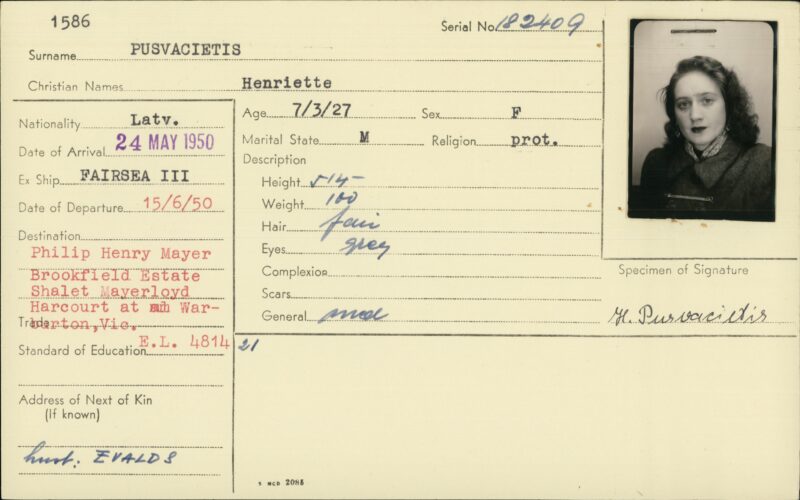 1586
Serial No. 182409
Surname PUSVACIETIS
Christian Names Henriette
Nationality Latv.
Date of Arrival 24 MAY 1950
Ex Ship FAIRSEA III
Date of Departure 15/6/50
Destination
Philip Henry Mayer
Brookfield Estate
Shalet Mayerloyd
Harcourt at War-
Trade burton,Vic.
Standard of Education E.L. 4814
Address of Next of Kin
(If known)
husb. EVALDS
Age 7/3/27 Sex F
Marital State M Religion prot.
Description
Height 5'4"
Weight 100
Hair fair
Eyes grey
Complexion
Scars
General med
21
Specimen of Signature
H. Pusvacietis
2088